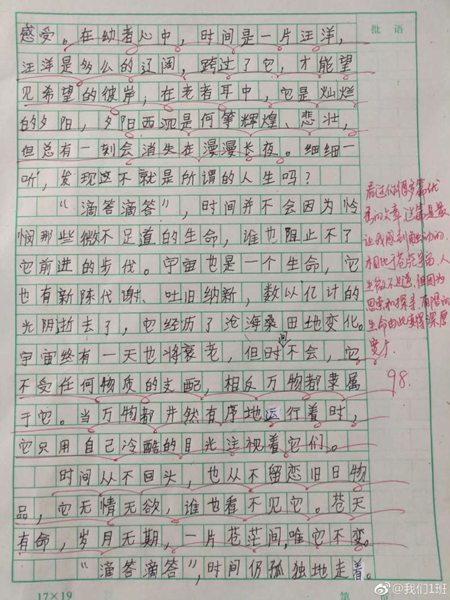 批 语
感受。在幼者心中，时间是一片汪洋，
汪洋是多么的辽阔，跨过了它，才能望
见希望的彼岸，在老者耳中，它是灿烂
的夕阳，夕阳西沉是何等辉煌、悲壮，
但总有一刻会消失在漫漫长夜。细细一
听，发现这不就是所谓的人生吗？
“滴答滴答”，时间并不会因为怜
悯那些微不足道的生命，谁也阻止不了
它前进的步伐。宇宙也是一个生命，它
也有新陈代谢、吐旧纳新，数以亿计的
光阴逝去了，它经历了沧海桑田地变化。
宇宙终有一天也将衰老，但时间不会，它
不受任何物质的支配，相反万物都隶属
于它。当万物都井然有序地运行着时，
它只用自己冷酷的目光注视着它们。
时间从不回头，也从不留恋旧日物
品，它无情无欲，谁也看不见它。苍天
有命，岁月无期，一片苍茫间，唯它不变。
“滴答滴答”，时间仍孤独地走着。
看过你很多篇优
秀的文章，这篇是最
让我感到触动的。
相比于苍茫宇宙，人
生微不足道，但因为
思索和探寻，有限的
生命由此变得深厚
98.
17×19
第
@我们1班